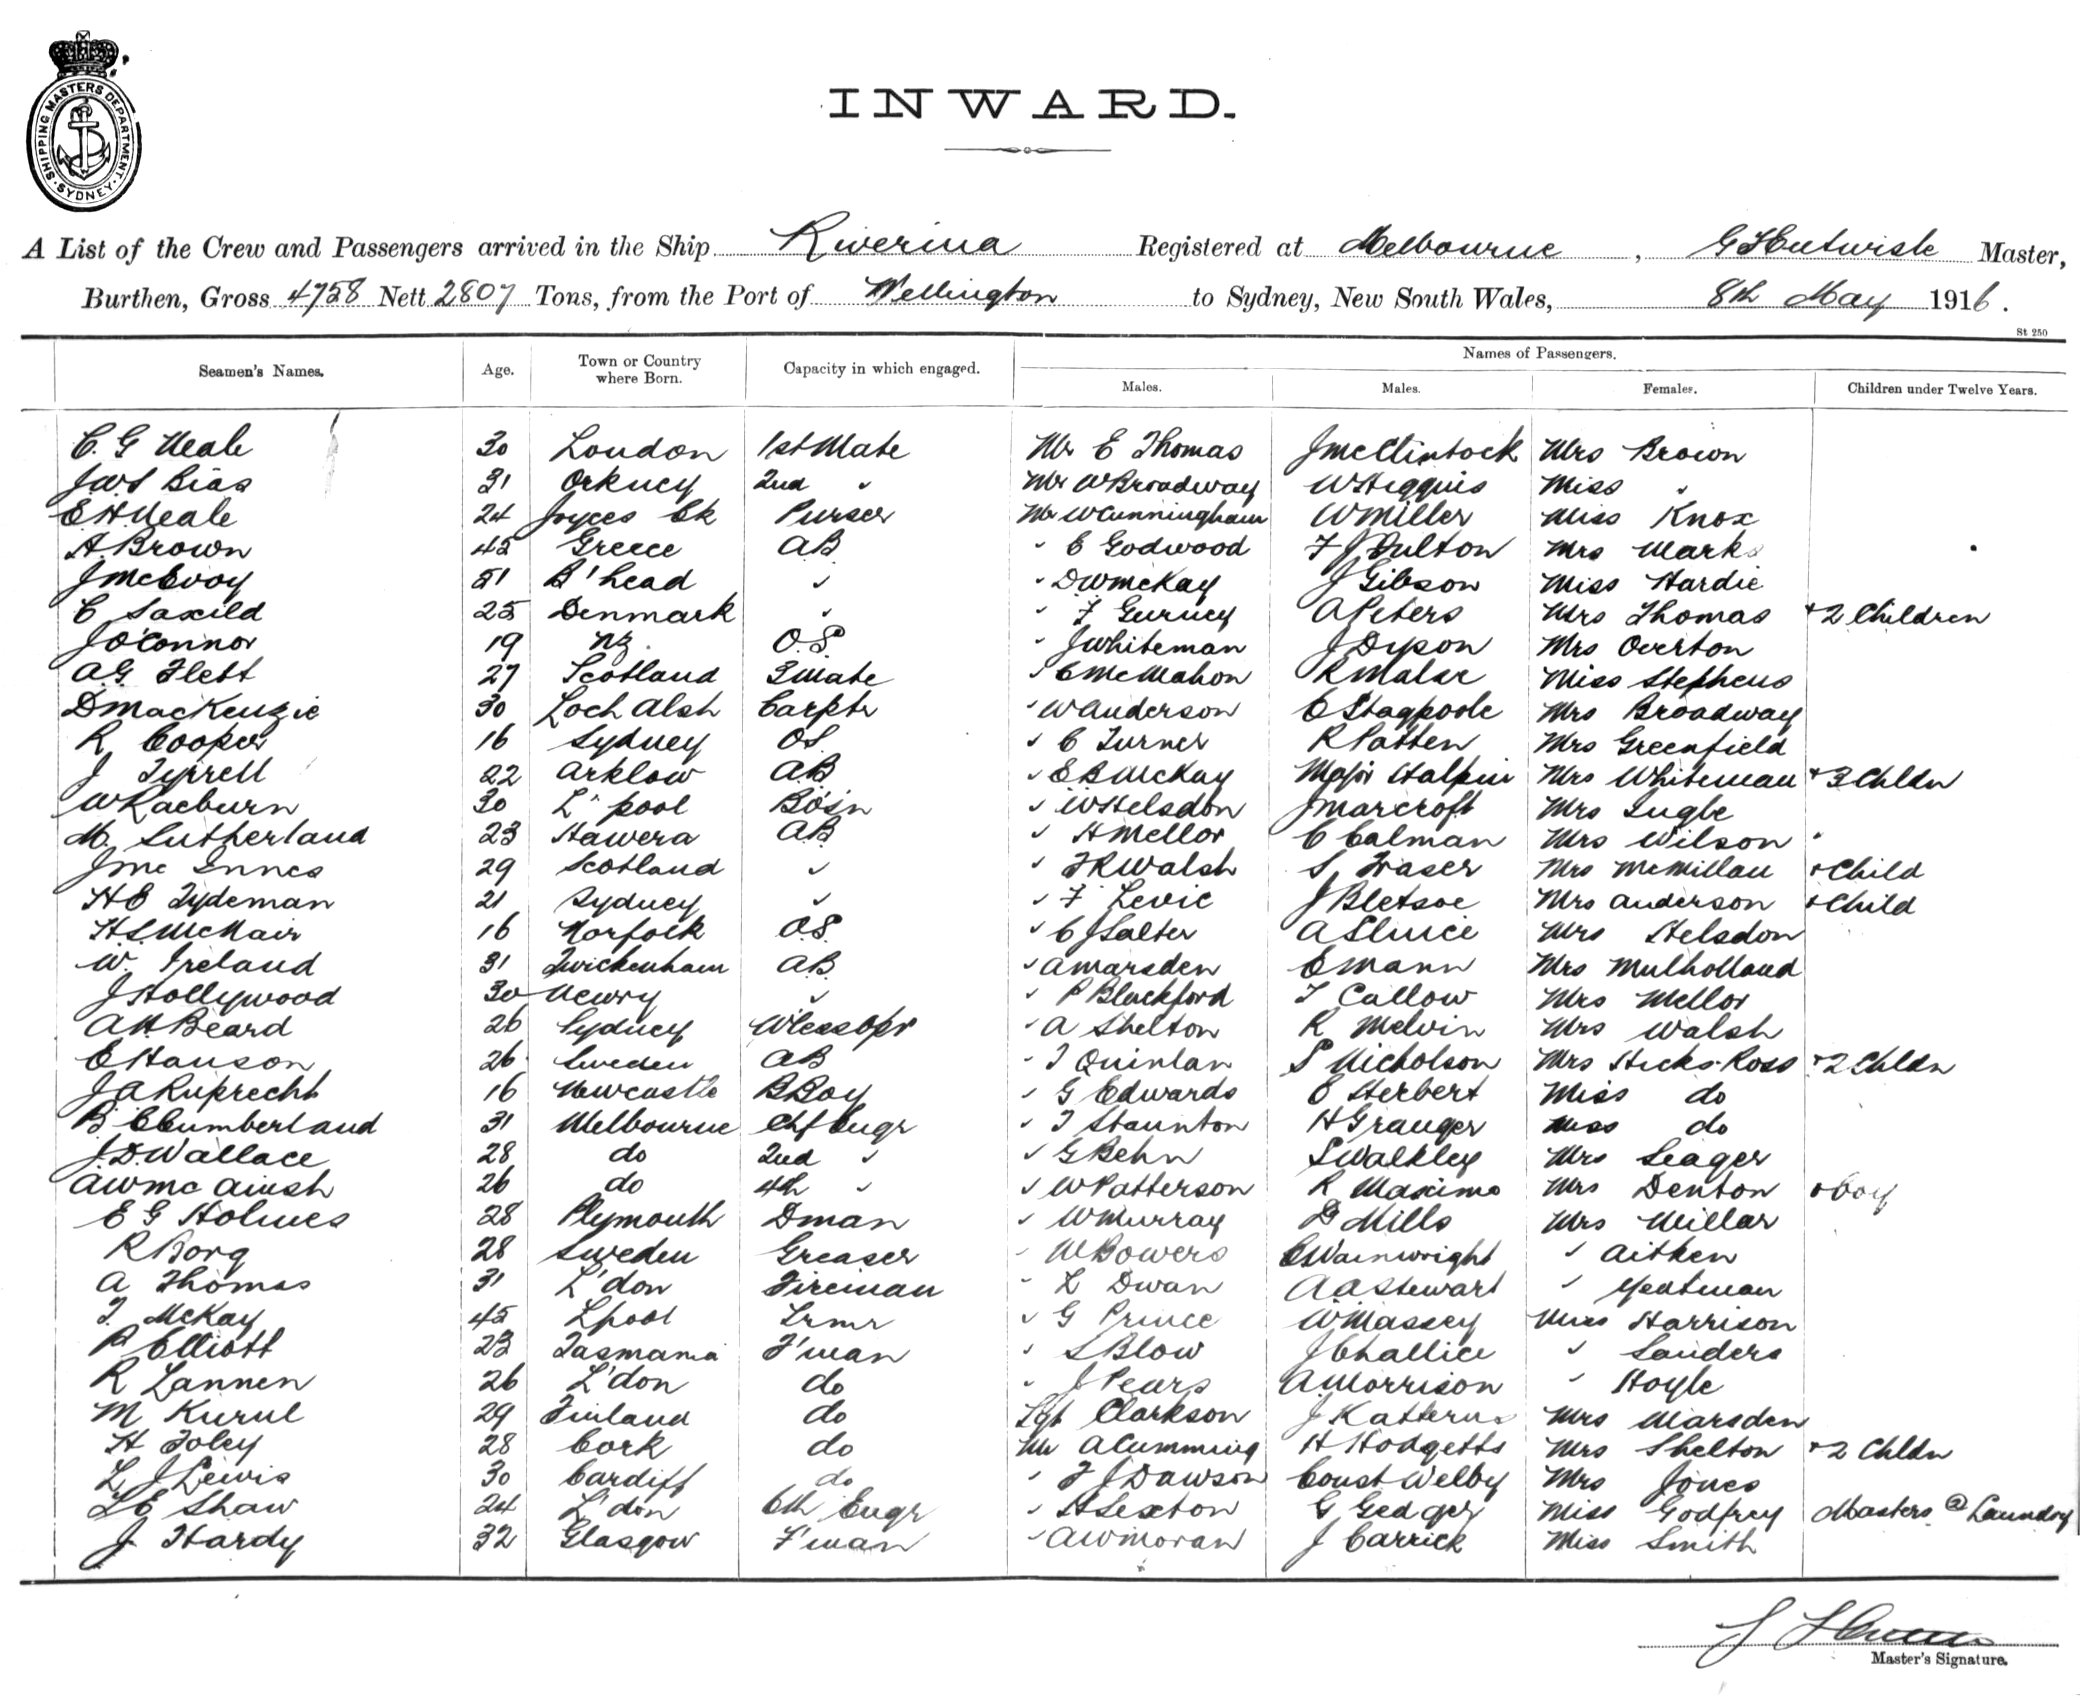 SHIPPING MASTERS DEPARTMENT
SYDNEY
INWARD.
A List of the Crew and Passengers arrived in the Ship Riverina Registered at Melbourne, Master,
Burthen, Gross 4758 Nett 2807 Tons, from the Port of Wellington to Sydney, New South Wales, 8th May 1916.
St 250
Seamen's Names. Age. Town or Country where Born. Capacity in which engaged. Names of Passengers.
Males. Males. Females. Children under Twelve Years.
C. G Neale 30 London 1st Mate Mr E Thomas J McClintock Mrs Brown
JWS Bias 31 Orkney 2nd " Mr W Broadway W Higgins Miss "
E H Neale 24 Joyces Ck Purser Mr W Cunningham W Miller Miss Knox
A Brown 42 Greece AB " E Godwood F J Fulton Mrs Marks
J McEvoy 51 B'head " " D W McKay J Gibson Miss Hardie
C Saxild 25 Denmark " " F Gurney A Peters Mrs Thomas + 2 Children
J O'Connor 19 NZ. O.S " J Whiteman J Dyson Mrs Overton
A.G. Flett 27 Scotland 3 Mate " C McMahon R Malse Miss Stephens
D MacKenzie 30 Loch Alsh Carptr " W Anderson E Stagpoole Mrs Broadway
R Cooper 16 Sydney OS. " C Turner R Patten Mrs Greenfield
J Tyrrell 22 Arklow AB " E B McKay Major Halpin Mrs Whiteman + 3 Chldn
W Raeburn 30 L'pool Bo's'n " W Helsdon J Marcroft Mrs Lugbe
M. Sutherland 23 Hawera AB " H Mellor C Calman Mrs Wilson
J Mc Innes 29 Scotland " " F R Walsh S Fraser Mrs McMillan + Child
H E Tydeman 21 Sydney " " F Levic J Bletsoe Mrs Anderson + Child
H. S. McNair 16 Norfolk O.S. " C J Salter A Sluice Mrs Helsdon
W. Ireland 31 Twickenham A.B. " A Marsden E Mann Mrs Mulholland
J Hollywood 30 Newry " " P Blackford T Callow Mrs Mellor
A H Beard 26 Sydney W'less Opr " A Shelton R Melvin Mrs Walsh
E Hanson 26 Sweden AB " T Quinlan S Nicholson Mrs Hicks-Ross + 2 Chldn
J A Ruprecht 16 Newcastle B Boy " G Edwards E Herbert Miss do
B C Cumberland 31 Melbourne Chf Engr " T Staunton H Granger Miss do
J. D. Wallace 28 do 2nd " " G Behn S Walkley Mrs Seager
A W Mc Aiush 26 do 4th " " W Patterson R Maximo Mrs Denton + boy
E G Holmes 28 Plymouth Dman " W Murray G Mills Mrs Millar
R Borg 28 Sweden Greaser " W Bowers C Wainwright " Aitken
A Thomas 31 L'don Fireman " L Dwan A A Stewart " Yeatman
T. McKay 45 Lpool Trmr " G Prince W Massey Miss Harrison
P Elliott 23 Tasmania F'man " S Blow J Challice " Sanders
R Lannen 26 L'don do " J Pears A Morrison " Hoyle
M Kurul 29 Finland do Sgt Clarkson J Katterns Mrs Marsden
H Foley 28 Cork do Mr A Cumming H Hodgetts Mrs Shelton + 2 Chldn
L J Lewis 30 Cardiff do " F J Dawson Const Welby Mrs Jones
L E Shaw 24 L'don 6th Engr " H Sexton G Gedger Miss Godfrey Masters @ Laundry
J Hardy 32 Glasgow F'man " A W Moran J Carrick Miss Smith
Master's Signature.